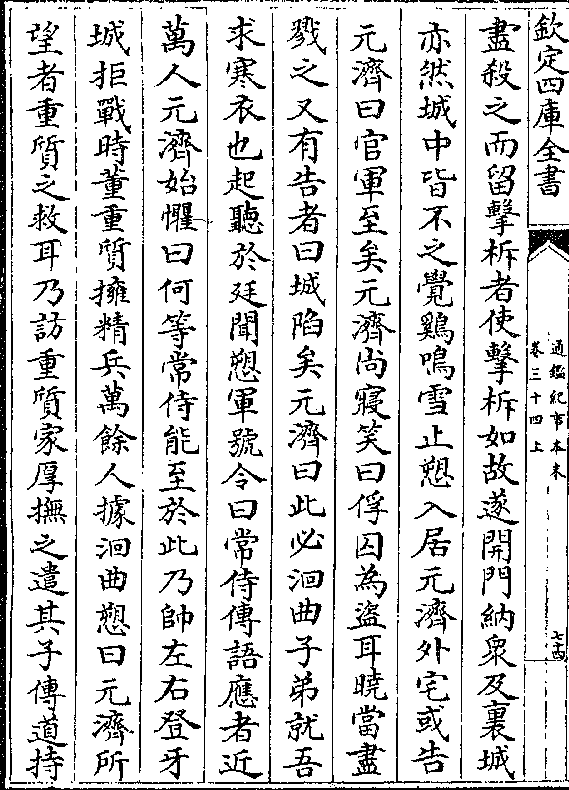 欽定四庫全書
通鑑紀事本末
卷三十四上
七十四
盡殺之而留擊柝者使擊柝如故遂開門納衆及裏城
亦然城中皆不之覺鷄鳴雪止愬入居元濟外宅或告
元濟曰官軍至矣元濟尚寢笑曰俘囚為盜耳曉當盡
戮之又有告者曰城陷矣元濟曰此必洄曲子弟就吾
求寒衣也起聽於廷聞愬軍號令曰常侍傳語應者近
萬人元濟始懼曰何等常侍能至於此乃帥左右登牙
城拒戰時董重質擁精兵萬餘人據洄曲愬曰元濟所
望者重質之救耳乃訪重質家厚撫之遣其子傳道持